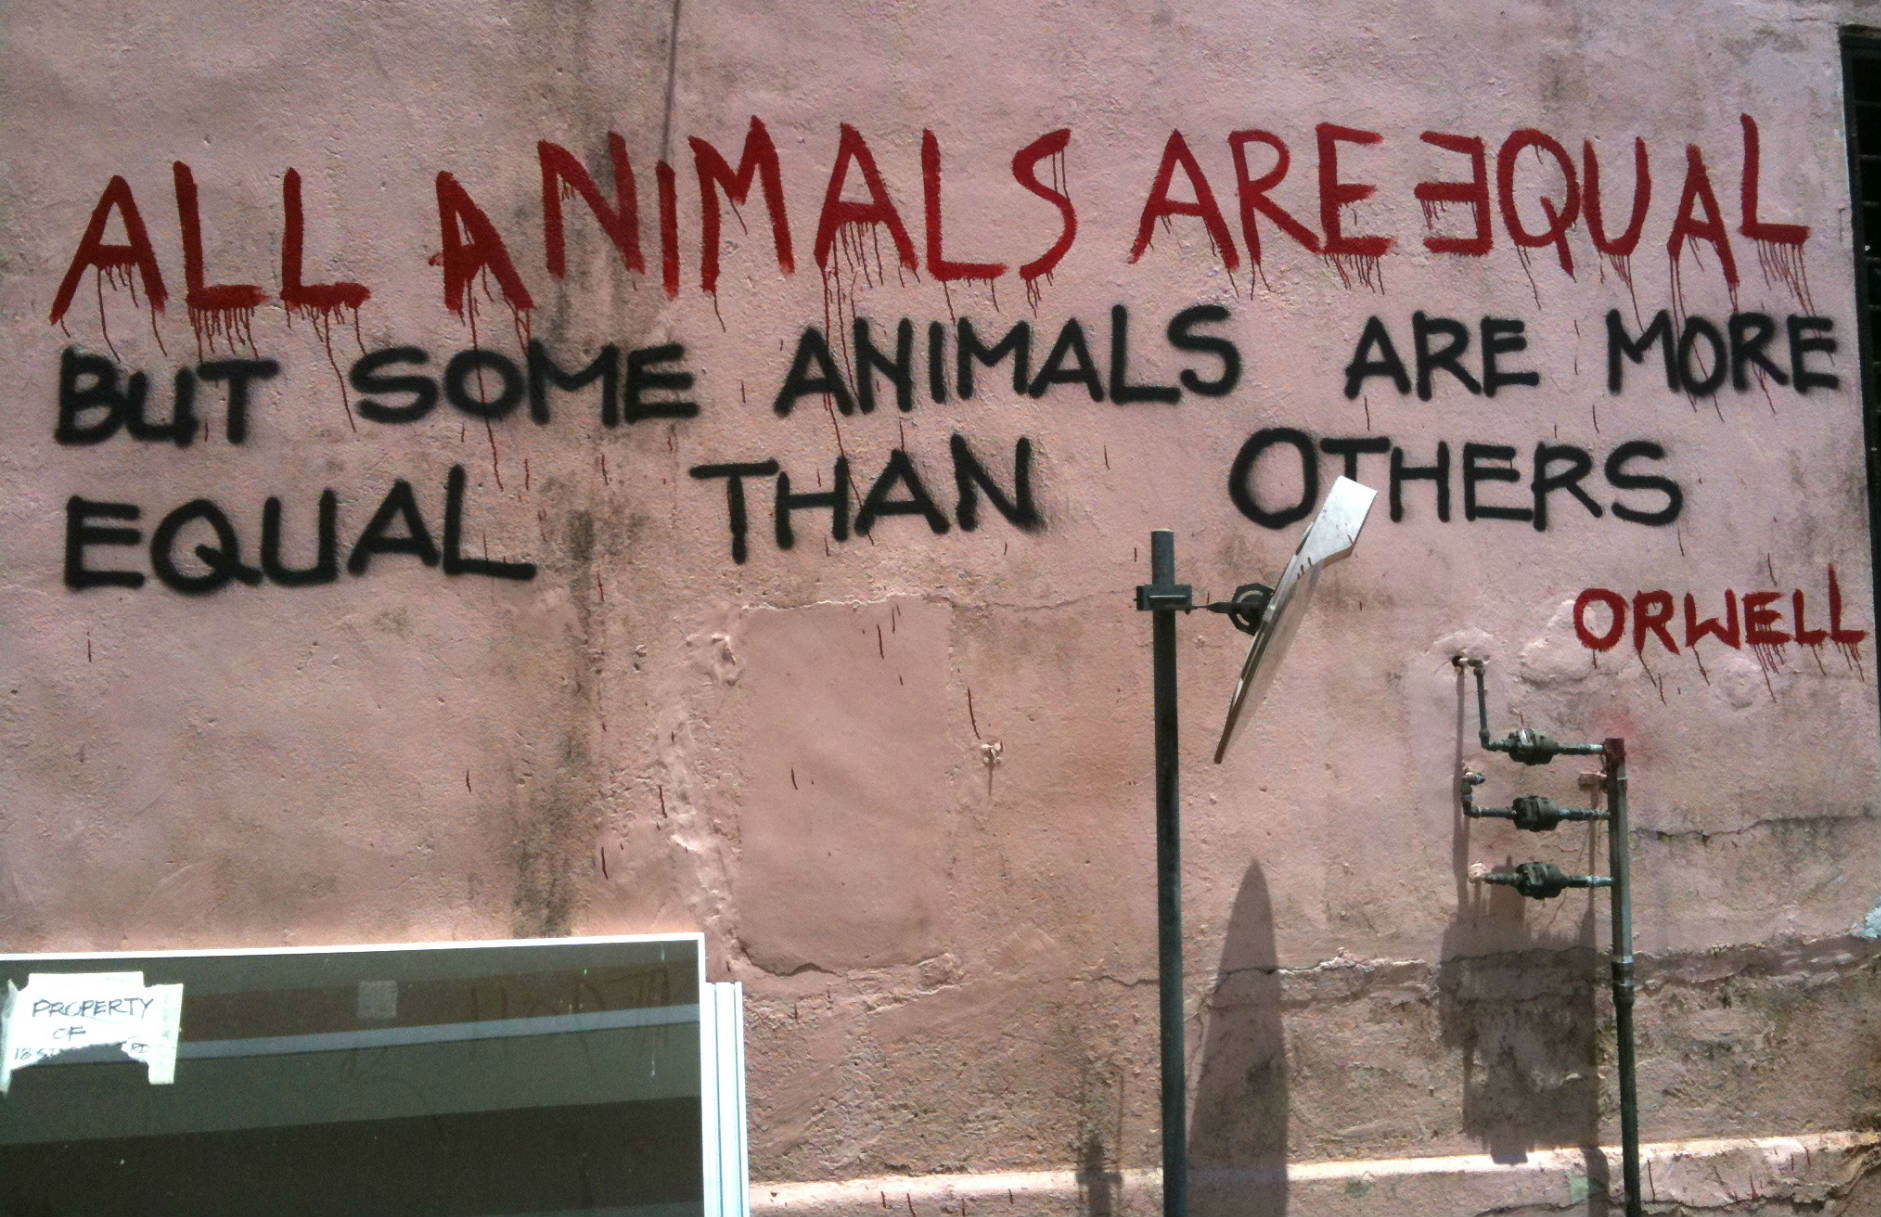 ALL ANIMALS ARE EQUAL
BUT SOME ANIMALS ARE MORE
EQUAL THAN OTHERS
ORWELL
PROPERTY
OF